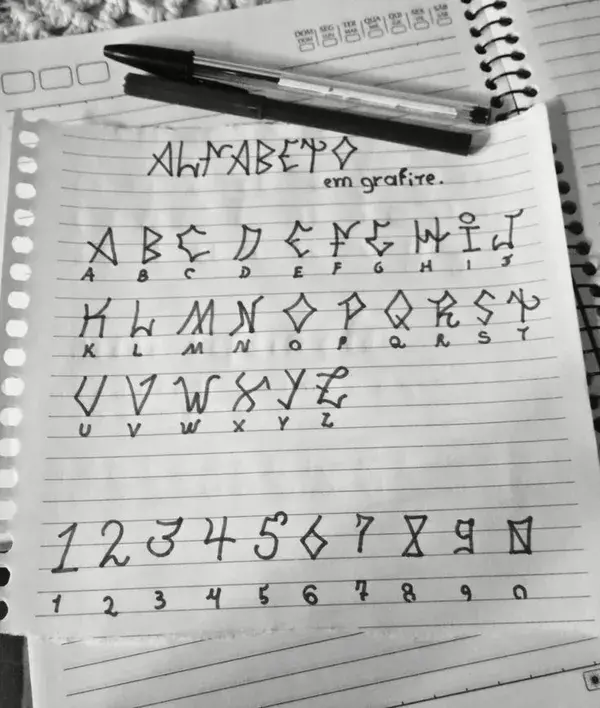 DOM SEG TER QUA QUI SEX SÁB
ALFABETO
em grafite.
A B C D E F G H I J
A B C D E F G H I J
K L M N O P Q R S T
K L M N O P Q R S T
U V W X Y Z
U V W X Y Z
1 2 3 4 5 6 7 8 9 0
1 2 3 4 5 6 7 8 9 0